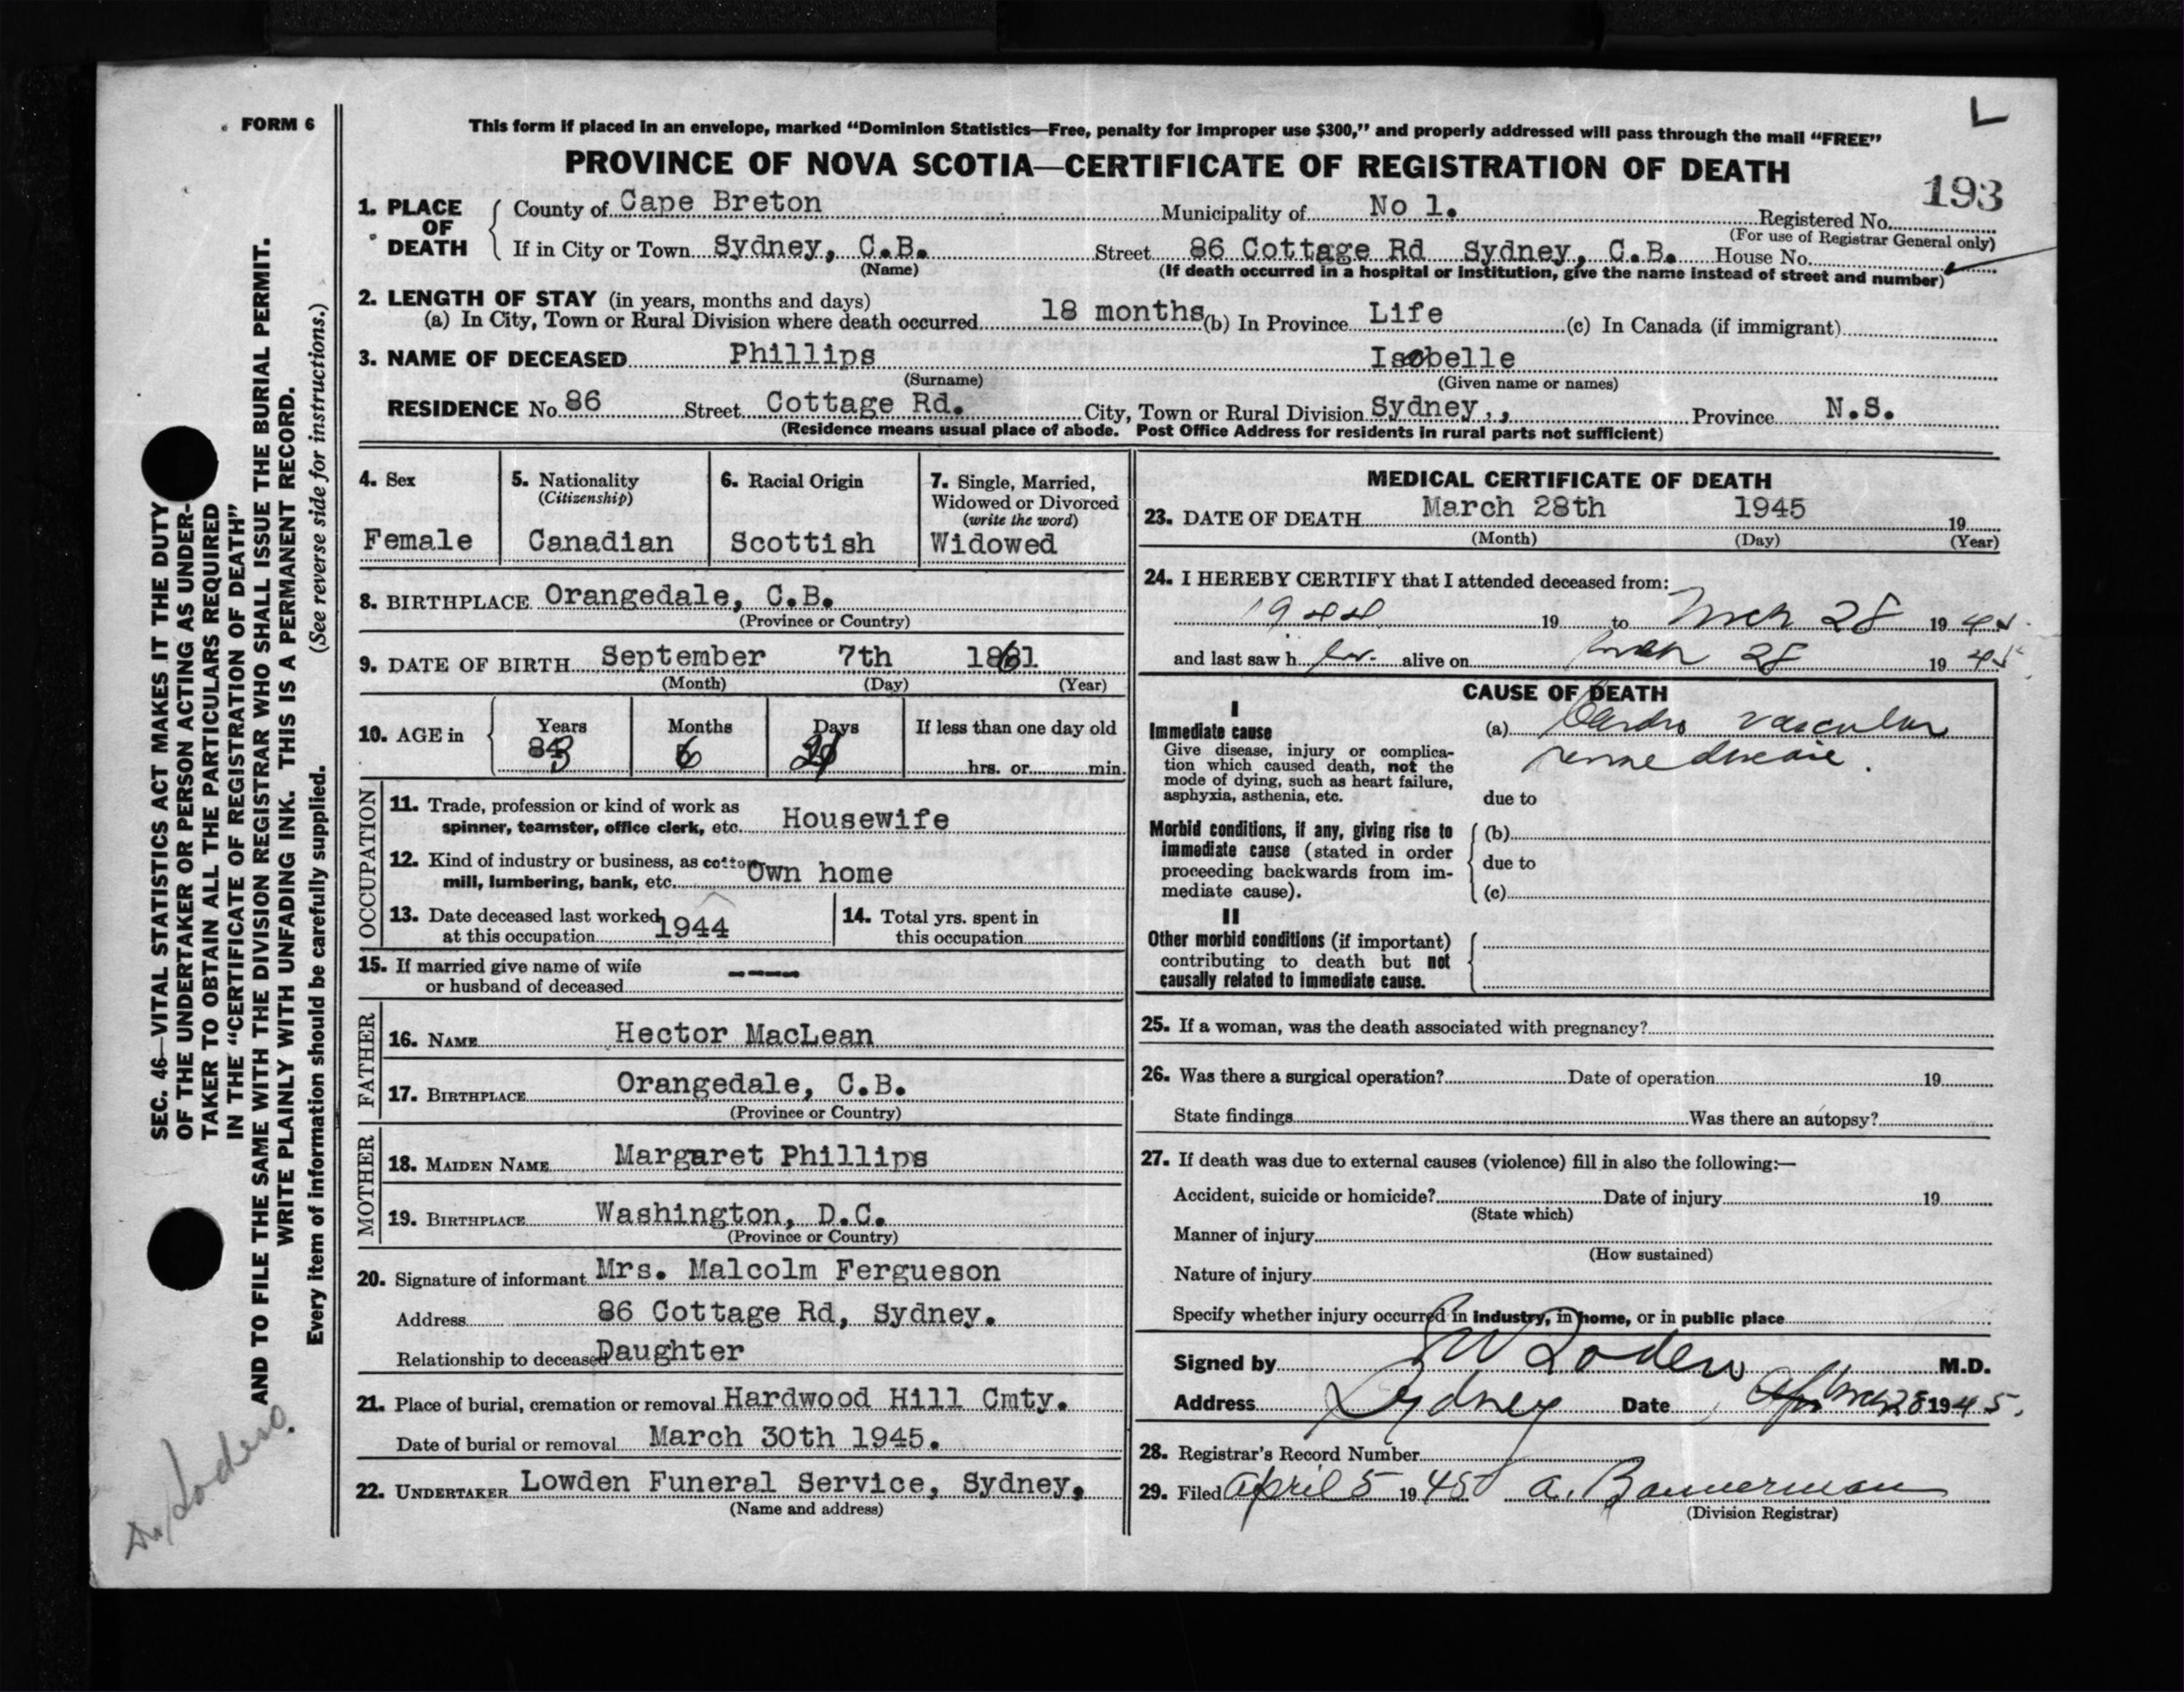 L
FORM 6
This form if placed in an envelope, marked “Dominion Statistics—Free, penalty for improper use $300,” and properly addressed will pass through the mail “FREE”
PROVINCE OF NOVA SCOTIA—CERTIFICATE OF REGISTRATION OF DEATH
193
1. PLACE OF DEATH
County of Cape Breton Municipality of No 1. Registered No.
(For use of Registrar General only)
If in City or Town Sydney, C.B. Street 86 Cottage Rd Sydney, C.B. House No.
(Name) (If death occurred in a hospital or institution, give the name instead of street and number)
2. LENGTH OF STAY (in years, months and days)
(a) In City, Town or Rural Division where death occurred 18 months (b) In Province Life (c) In Canada (if immigrant)
3. NAME OF DECEASED Phillips Isobelle
(Surname) (Given name or names)
RESIDENCE No. 86 Street Cottage Rd. City, Town or Rural Division Sydney,, Province N.S.
(Residence means usual place of abode. Post Office Address for residents in rural parts not sufficient)
4. Sex
Female
5. Nationality
(Citizenship)
Canadian
6. Racial Origin
Scottish
7. Single, Married,
Widowed or Divorced
(write the word)
Widowed
8. BIRTHPLACE Orangedale, C.B.
(Province or Country)
9. DATE OF BIRTH September 7th 1861
(Month) (Day) (Year)
10. AGE in Years Months Days If less than one day old
83 6 21 hrs. or min.
OCCUPATION
11. Trade, profession or kind of work as
spinner, teamster, office clerk, etc. Housewife
12. Kind of industry or business, as cotton
mill, lumbering, bank, etc. Own home
13. Date deceased last worked
at this occupation 1944
14. Total yrs. spent in
this occupation
15. If married give name of wife
or husband of deceased ----
FATHER
16. NAME Hector MacLean
17. BIRTHPLACE Orangedale, C.B.
(Province or Country)
MOTHER
18. MAIDEN NAME Margaret Phillips
19. BIRTHPLACE Washington, D.C.
(Province or Country)
20. Signature of informant Mrs. Malcolm Fergueson
Address 86 Cottage Rd, Sydney.
Relationship to deceased Daughter
21. Place of burial, cremation or removal Hardwood Hill Cmty.
Date of burial or removal March 30th 1945.
22. UNDERTAKER Lowden Funeral Service, Sydney.
(Name and address)
MEDICAL CERTIFICATE OF DEATH
23. DATE OF DEATH March 28th 1945 19
(Month) (Day) (Year)
24. I HEREBY CERTIFY that I attended deceased from:
1944 19 to Mch 28 1945
and last saw her alive on March 28 1945
CAUSE OF DEATH
I
Immediate cause
Give disease, injury or complica-
tion which caused death, not the
mode of dying, such as heart failure,
asphyxia, asthenia, etc.
(a) Cardio vascular
disease.
due to
Morbid conditions, if any, giving rise to
immediate cause (stated in order
proceeding backwards from im-
mediate cause).
(b)
due to
(c)
II
Other morbid conditions (if important)
contributing to death but not
causally related to immediate cause.
25. If a woman, was the death associated with pregnancy?
26. Was there a surgical operation? Date of operation 19
State findings Was there an autopsy?
27. If death was due to external causes (violence) fill in also the following:—
Accident, suicide or homicide? Date of injury 19
(State which)
Manner of injury
(How sustained)
Nature of injury
Specify whether injury occurred in industry, in home, or in public place
Signed by M.D.
Address Sydney Date Mch 28 1945.
28. Registrar's Record Number
29. Filed April 5 1945 A. Bannerman
(Division Registrar)
SEC. 46—VITAL STATISTICS ACT MAKES IT THE DUTY
OF THE UNDERTAKER OR PERSON ACTING AS UNDER-
TAKER TO OBTAIN ALL THE PARTICULARS REQUIRED
IN THE “CERTIFICATE OF REGISTRATION OF DEATH”
AND TO FILE THE SAME WITH THE DIVISION REGISTRAR WHO SHALL ISSUE THE BURIAL PERMIT.
WRITE PLAINLY WITH UNFADING INK. THIS IS A PERMANENT RECORD.
Every item of information should be carefully supplied. (See reverse side for instructions.)